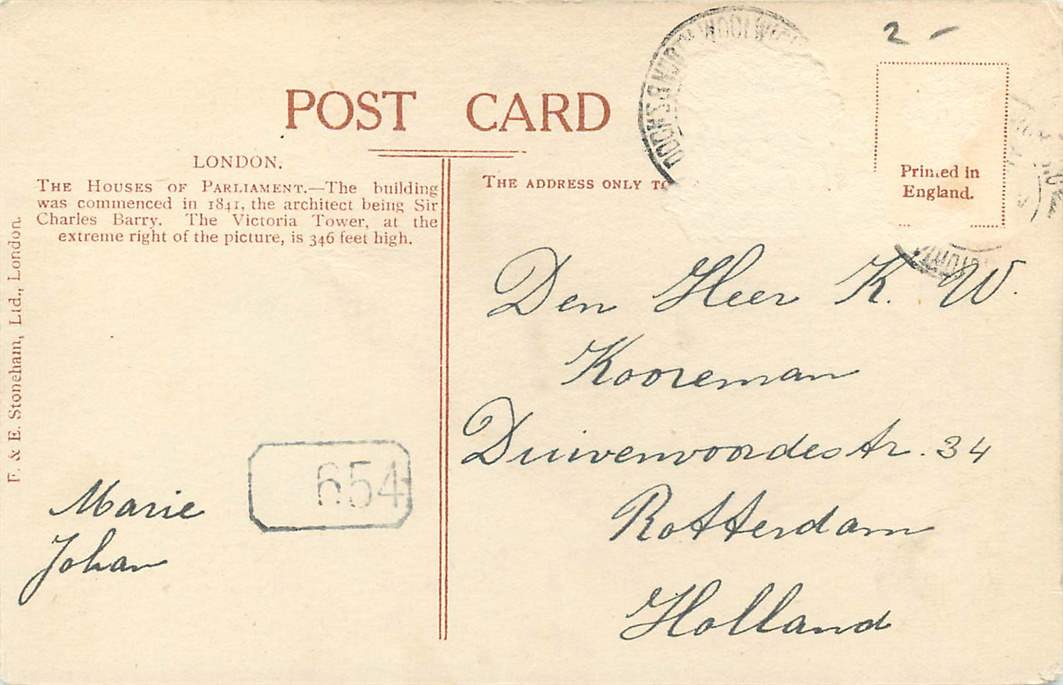 2 -
POST CARD
LONDON.
THE HOUSES OF PARLIAMENT.—The building
was commenced in 1841, the architect being Sir
Charles Barry. The Victoria Tower, at the
extreme right of the picture, is 346 feet high.
F. & E. Stoneham, Ltd., London.
THE ADDRESS ONLY TO
Printed in
England.
WOOLWICH
DOCKS
Den Heer K. W.
Kooreman
Duivenvoordestr. 34
Rotterdam
Holland
654
Marie
Johan